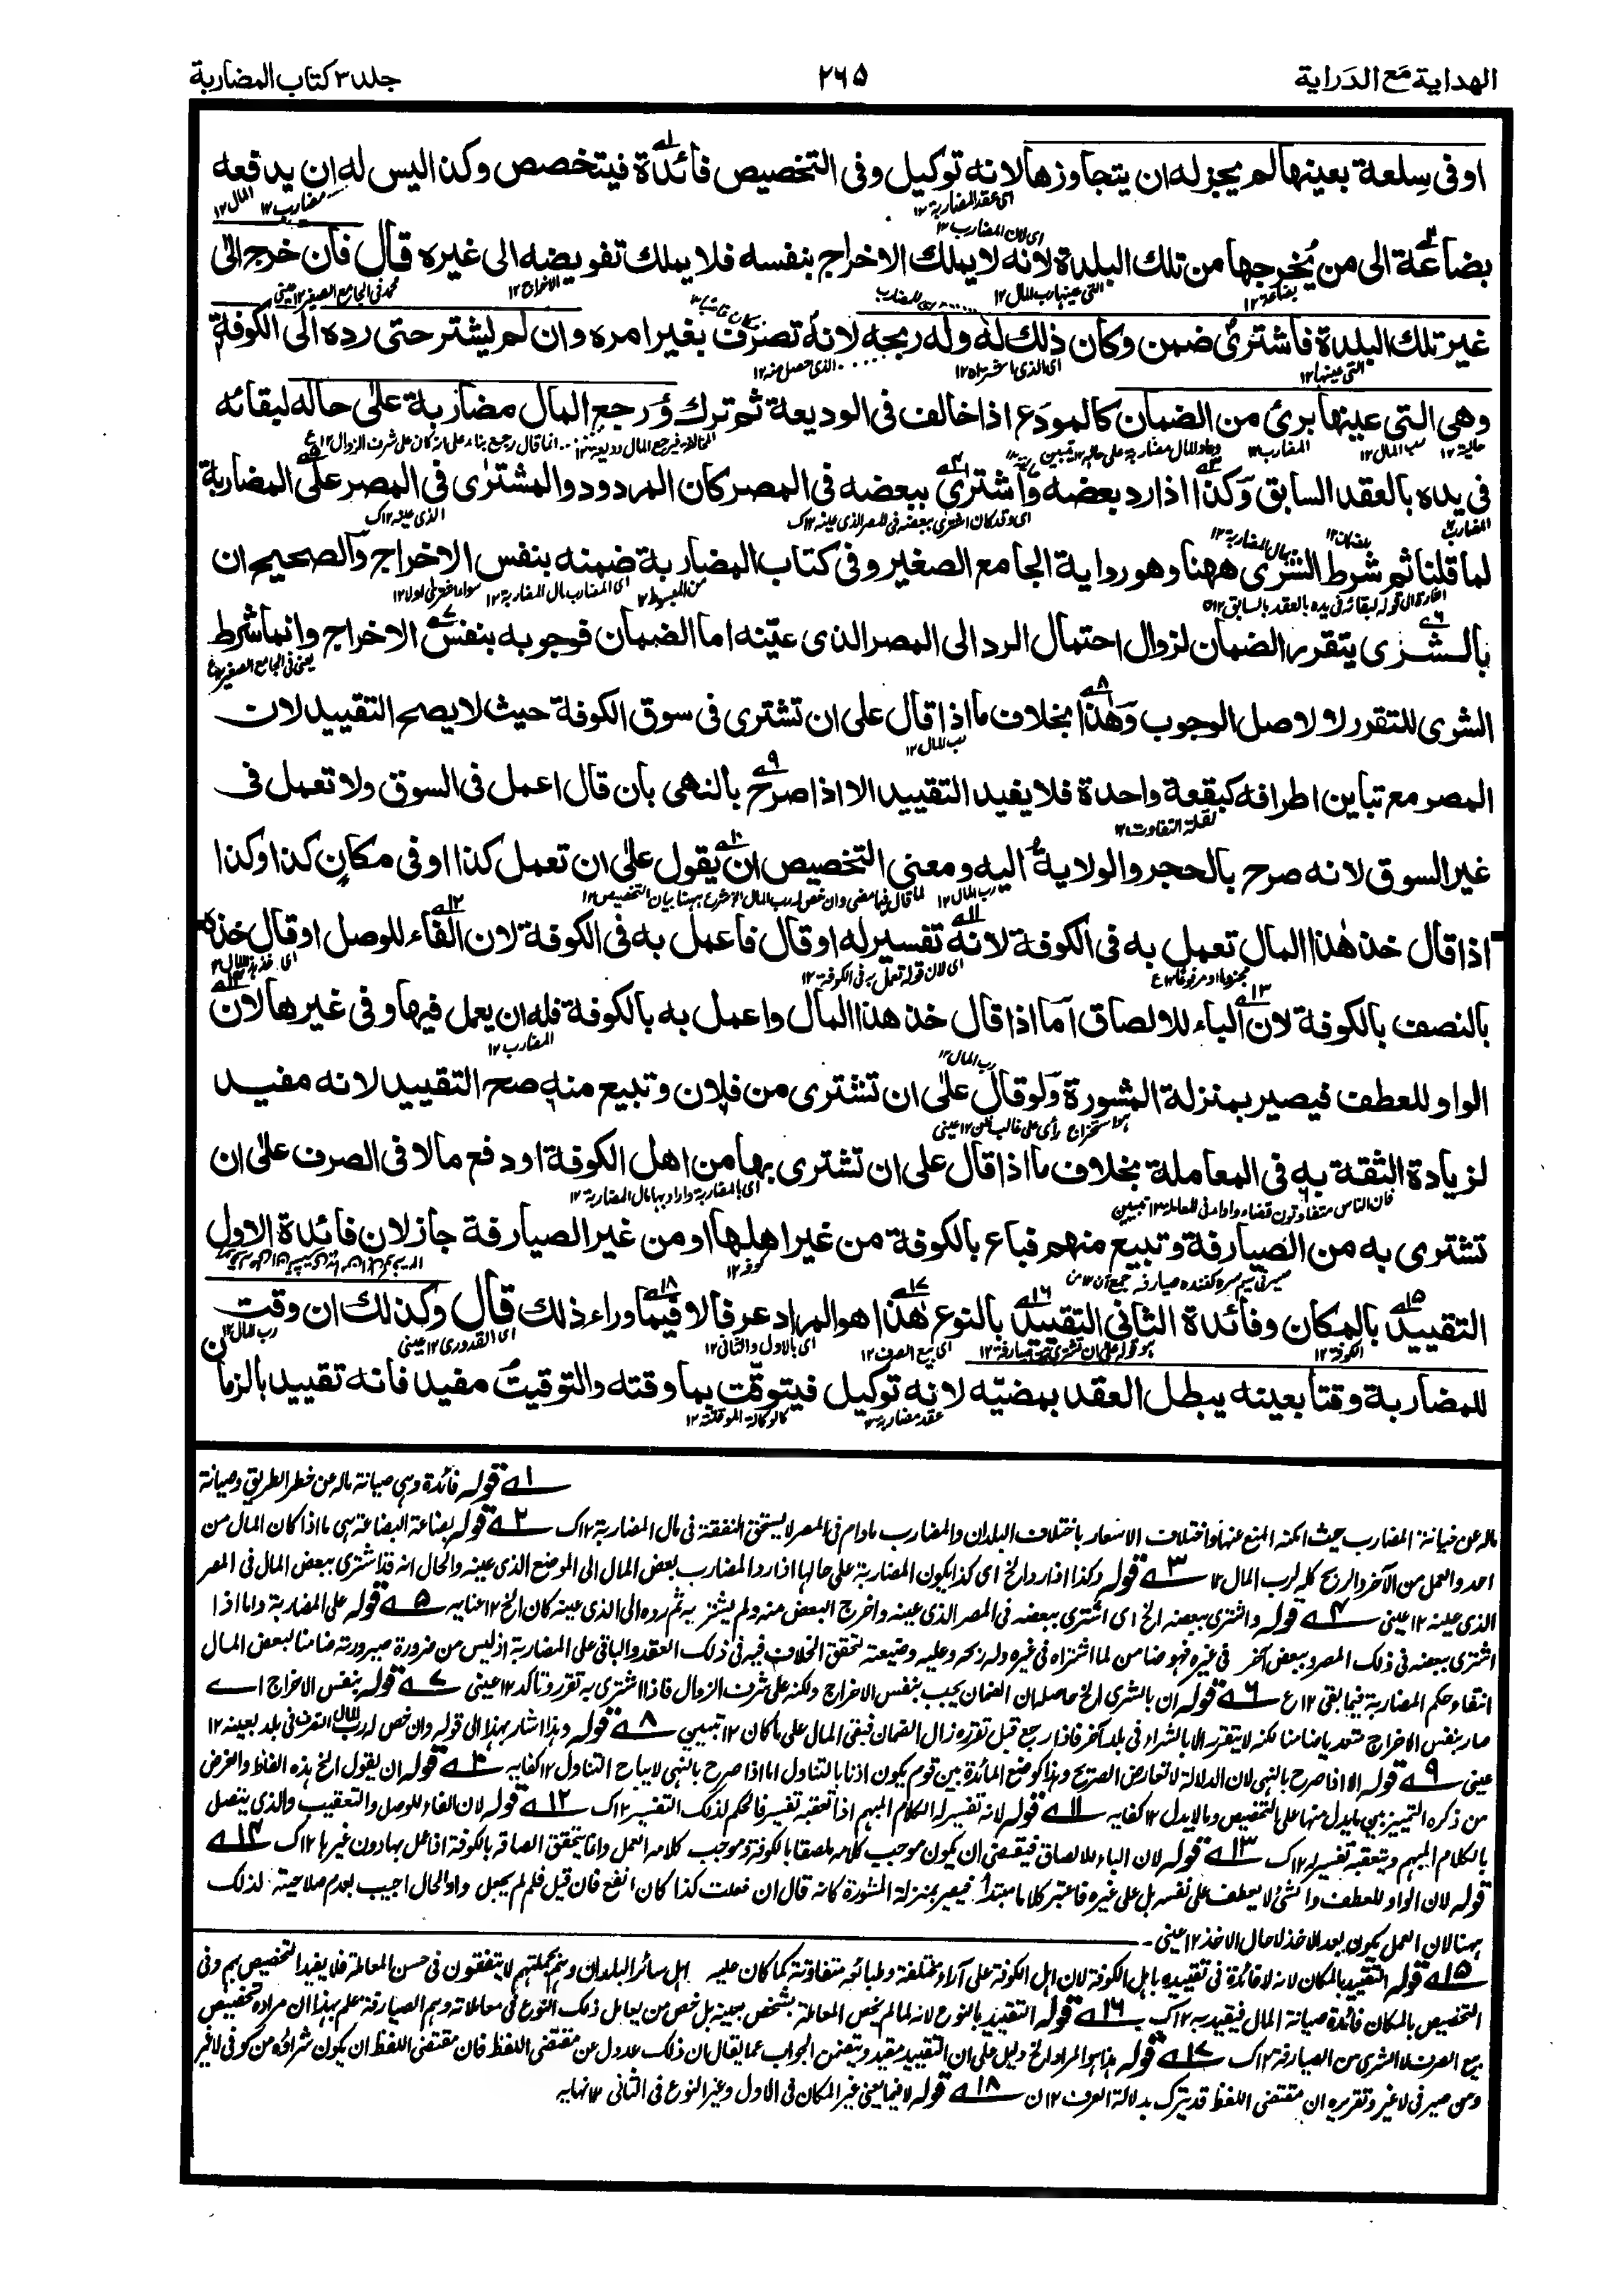 الهداية مع الدراية ٢٦٥ جلد ٣ كتاب المضاربة
او فى سلعة بعينها لم يجز له ان يتجاوزها لانه توكيل وفى التخصيص فائدة فيتخصص وكذا ليس له ان يدفعه
بضاعة الى من يخرجها من تلك البلدة لانه لا يملك الاخراج بنفسه فلا يملك تفويضه الى غيره قال فان خرج الى
غير تلك البلدة فاشترى ضمن وكان ذلك له وله ربحه لانه تصرف بغير امره وان لم يشتر حتى رده الى الكوفة
وهى التى عينها برئ من الضمان كالمودع اذا خالف فى الوديعة ثم ترك ورجع المال مضاربة على حاله لبقائه
فى يده بالعقد السابق وكذا اذا رد بعضه واشترى ببعضه فى المصر كان المردود والمشترى فى المصر على المضاربة
لما قلنا ثم شرط الشرى ههنا وهو رواية الجامع الصغير وفى كتاب المضاربة ضمنه بنفس الاخراج والصحيح ان
بالشرى يتقرر الضمان لزوال احتمال الرد الى المصر الذى عينه اما الضمان فوجوبه بنفس الاخراج وانما شرط
الشرى للتقرر لا لاصل الوجوب وهذا بخلاف ما اذا قال على ان تشترى فى سوق الكوفة حيث لا يصح التقييد لان
المصر مع تباين اطرافه كبقعة واحدة فلا يفيد التقييد الا اذا صرح بالنهى بان قال اعمل فى السوق ولا تعمل فى
غير السوق لانه صرح بالحجر والولاية اليه ومعنى التخصيص ان يقول على ان تعمل كذا او فى مكان كذا وكذا
اذا قال خذ هذا المال تعمل به فى الكوفة لانه تفسير له او قال فاعمل به فى الكوفة لان الفاء للوصل او قال خذه
بالنصف بالكوفة لان الباء للالصاق اما اذا قال خذ هذا المال واعمل به بالكوفة فله ان يعمل فيها وفى غيرها لان
الواو للعطف فيصير بمنزلة المشورة ولو قال على ان تشترى من فلان وتبيع منه صح التقييد لانه مفيد
لزيادة الثقة به فى المعاملة بخلاف ما اذا قال على ان تشترى بها من اهل الكوفة او دفع مالا فى الصرف على ان
تشترى به من الصيارفة وتبيع منهم فباع بالكوفة من غير اهلها او من غير الصيارفة جاز لان فائدة الاول
التقييد بالمكان وفائدة الثانى التقييد بالنوع هذا هو المراد عرفا لا فيما وراء ذلك قال وكذلك ان وقت
للمضاربة وقتا بعينه يبطل العقد بمضيه لانه توكيل فيتوقت بما وقته والتوقيت مفيد فانه تقييد بالزمان
١ قوله فائدة وهى صيانة ماله عن خطر الطريق وصيانة
ماله عن خيانة المضارب حيث امكنه المنع عنها واختلاف الاسعار باختلاف البلدان والمضارب مادام فى المصر لا يستحق النفقة فى مال المضاربة ١٢ك ٢ قوله بضاعة البضاعة هى ما اذا كان المال من
احد والعمل من الآخر والربح كله لرب المال ١٢ ٣ قوله وكذا اذا رد الخ اى كذا يكون المضاربة على حالها اذا رد المضارب بعض المال الى الموضع الذى عينه والحال انه قد اشترى ببعض المال فى المصر
الذى عينه ١٢ عينى ٤ قوله واشترى ببعضه الخ اى اشترى ببعضه فى المصر الذى عينه واخرج البعض منه ولم يشتر به ثم رده الى الذى عينه كان الخ ١٢ عنايه ٥ قوله على المضاربة واما اذا
اشترى ببعضه فى ذلك المصر وببعض آخر فى غيره فهو ضامن لما اشتراه فى غيره وله ربحه وعليه وضيعته لتحقق الخلاف فيه فى ذلك العقد والباقى على المضاربة اذ ليس من ضرورة صيرورته ضامنا لبعض المال
انتفاء حكم المضاربة فيما بقى ١٢ع ٦ قوله ان بالشرى الخ حاصله ان الضمان يجب بنفس الاخراج ولكنه على شرف الزوال فاذا اشترى به تقرر وتاكد ١٢ عينى ٧ قوله بنفس الاخراج اے
صار بنفس الاخراج متعديا ضامنا لكنه لا يتقرر الا بالشراء فى بلد آخر فاذا رجع قبل تقرره زال الضمان فبقى المال على ما كان ١٢ تبيين ٨ قوله وهذا اشار بهذا الى قوله وان خص له رب المال التصرف فى بلد بعينه ١٢
عينى ٩ قوله الا اذا صرح بالنهى لان الدلالة لا تعارض الصريح وهذا كوضع المائدة بين قوم يكون اذنا بالتناول اما اذا صرح بالنهى لا يباح التناول ١٢ كفايه ١٠ قوله ان يقول الخ هذه الفاظ والغرض
من ذكره التمييز بين ما يدل منها على التخصيص وما لا يدل ١٢ كفايه ١١ قوله لانه تفسير له الكلام المبهم اذا تعقبه تفسير فالحكم لذلك التفسير ١٢ك ١٢ قوله لان الفاء للوصل والتعقيب والذى يتصل
بالكلام المبهم ويتعقبه تفسير له ١٢ك ١٣ قوله لان الباء للالصاق فيقتضى ان يكون موجب كلامه ملصقا بالكوفة وموجب كلامه العمل وانما يتحقق الصاقه بالكوفة اذا عمل بها دون غيرها ١٢ك ١٤
قوله لان الواو للعطف والشئ لا يعطف على نفسه بل على غيره فاعتبر كلاما مبتدأ فيصير بمنزلة المشورة كانه قال ان فعلت كذا كان انفع فان قيل فلم لم يجعل واو الحال اجيب بعدم صلاحيته لذلك
ههنا لان العمل يكون بعد الاخذ لا حال الاخذ ١٢ عينى
١٥ قوله التقييد بالمكان لانه لا فائدة فى تقييده باهل الكوفة لان اهل الكوفة على آراء مختلفة وطبائع متفاوتة كما كان عليه اهل سائر البلدان وهم بجملتهم لا يتفقون فى حسن المعاملة فلا يفيد التخصيص بهم وفى
التخصيص بالمكان فائدة صيانة المال فيقيد به ١٢ك ١٦ قوله التقييد بالنوع لانه لما لم يخص المعاملة بشخص بعينه بل خص من يعامل ذلك النوع فى معاملاته وهم الصيارفة علم بهذا ان مراده تخصيص
بيع الصرف لا الشرى من الصيارفة ١٢ك ١٧ قوله هذا هو المراد الخ دليل على ان التقييد مقيد ويتضمن الجواب عما يقال ان ذلك عدول عن مقتضى اللفظ فان مقتضى اللفظ ان يكون شراؤه من كوفى لا غير
ومن صيرفى لا غير وتقريره ان مقتضى اللفظ قد يترك بدلالة العرف ١٢ن ١٨ قوله لا فيما يعنى غير المكان فى الاول وغير النوع فى الثانى ١٢ نهايه